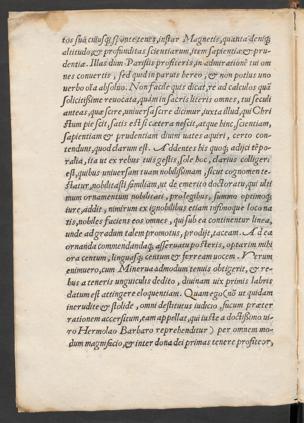 tos suā cuiusq; spōnte tenet, instar Magnetis, quanta deniq;
altitudo, & profunditas scientiarum, item sapientiæ & pru-
dentiæ. Illas dum Parisiis profiteris, in admirationē tui om
nes conuertis, sed quid in paruis hereo, & non potius uno
uerbo oīa absoluo. Non facile quis dicat, re ad calculos quā
solicitissime reuocata, quàm in sacris literis omnes, tus seculi
anteas, quæ scire, uniuersa scire dicimur, iuxta illud, qui Chri
stum pie scit, satis est si cætera nescit, atque hinc, scientiam,
sapientiam & prudentiam diuini uates aquiri, certo con-
tendunt, quod clarum est. Addentes his quoq; adijci tēpo-
ralia, ita ut ex rebus tuis gestis, sole hoc, clarius colligere
est, quibus uniuersam tuam nobilissimam sicut cognomen te-
statur, nobilitasti familiam, ut de emerito doctoratu, qui ulti
mum ornamentum nobilitati, pro legibus, summo optimoq;
iure, addit, nimirum ex ignobilibus etiam infimoque loco na
tis, nobiles faciens eos omnes, qui sub ea continentur linea,
unde ad gradum talem promotus, prodijt, taceam. Ad ea
ornanda commendandaq;, asseruanda posteris, optarim mihi
ora centum, linguasq; centum & ferream uocem. Verum
enimuero, cum Minerua admodum tenuis obtigerit, & re-
bus a teneris unguiculis dedito, diuinam uix primis labris
datum est attingere eloquentiam. Quam ego (nō ut quidam
inerudite & stolide, omni destitutus iudicio, fucum præter
rationem accersitum, eam appellat, qui iuste a doctissimo ui-
ro Hermolao Barbaro reprehenditur) per omnem mo-
dum magnifacio, & inter dona dei primas tenere profiteor,